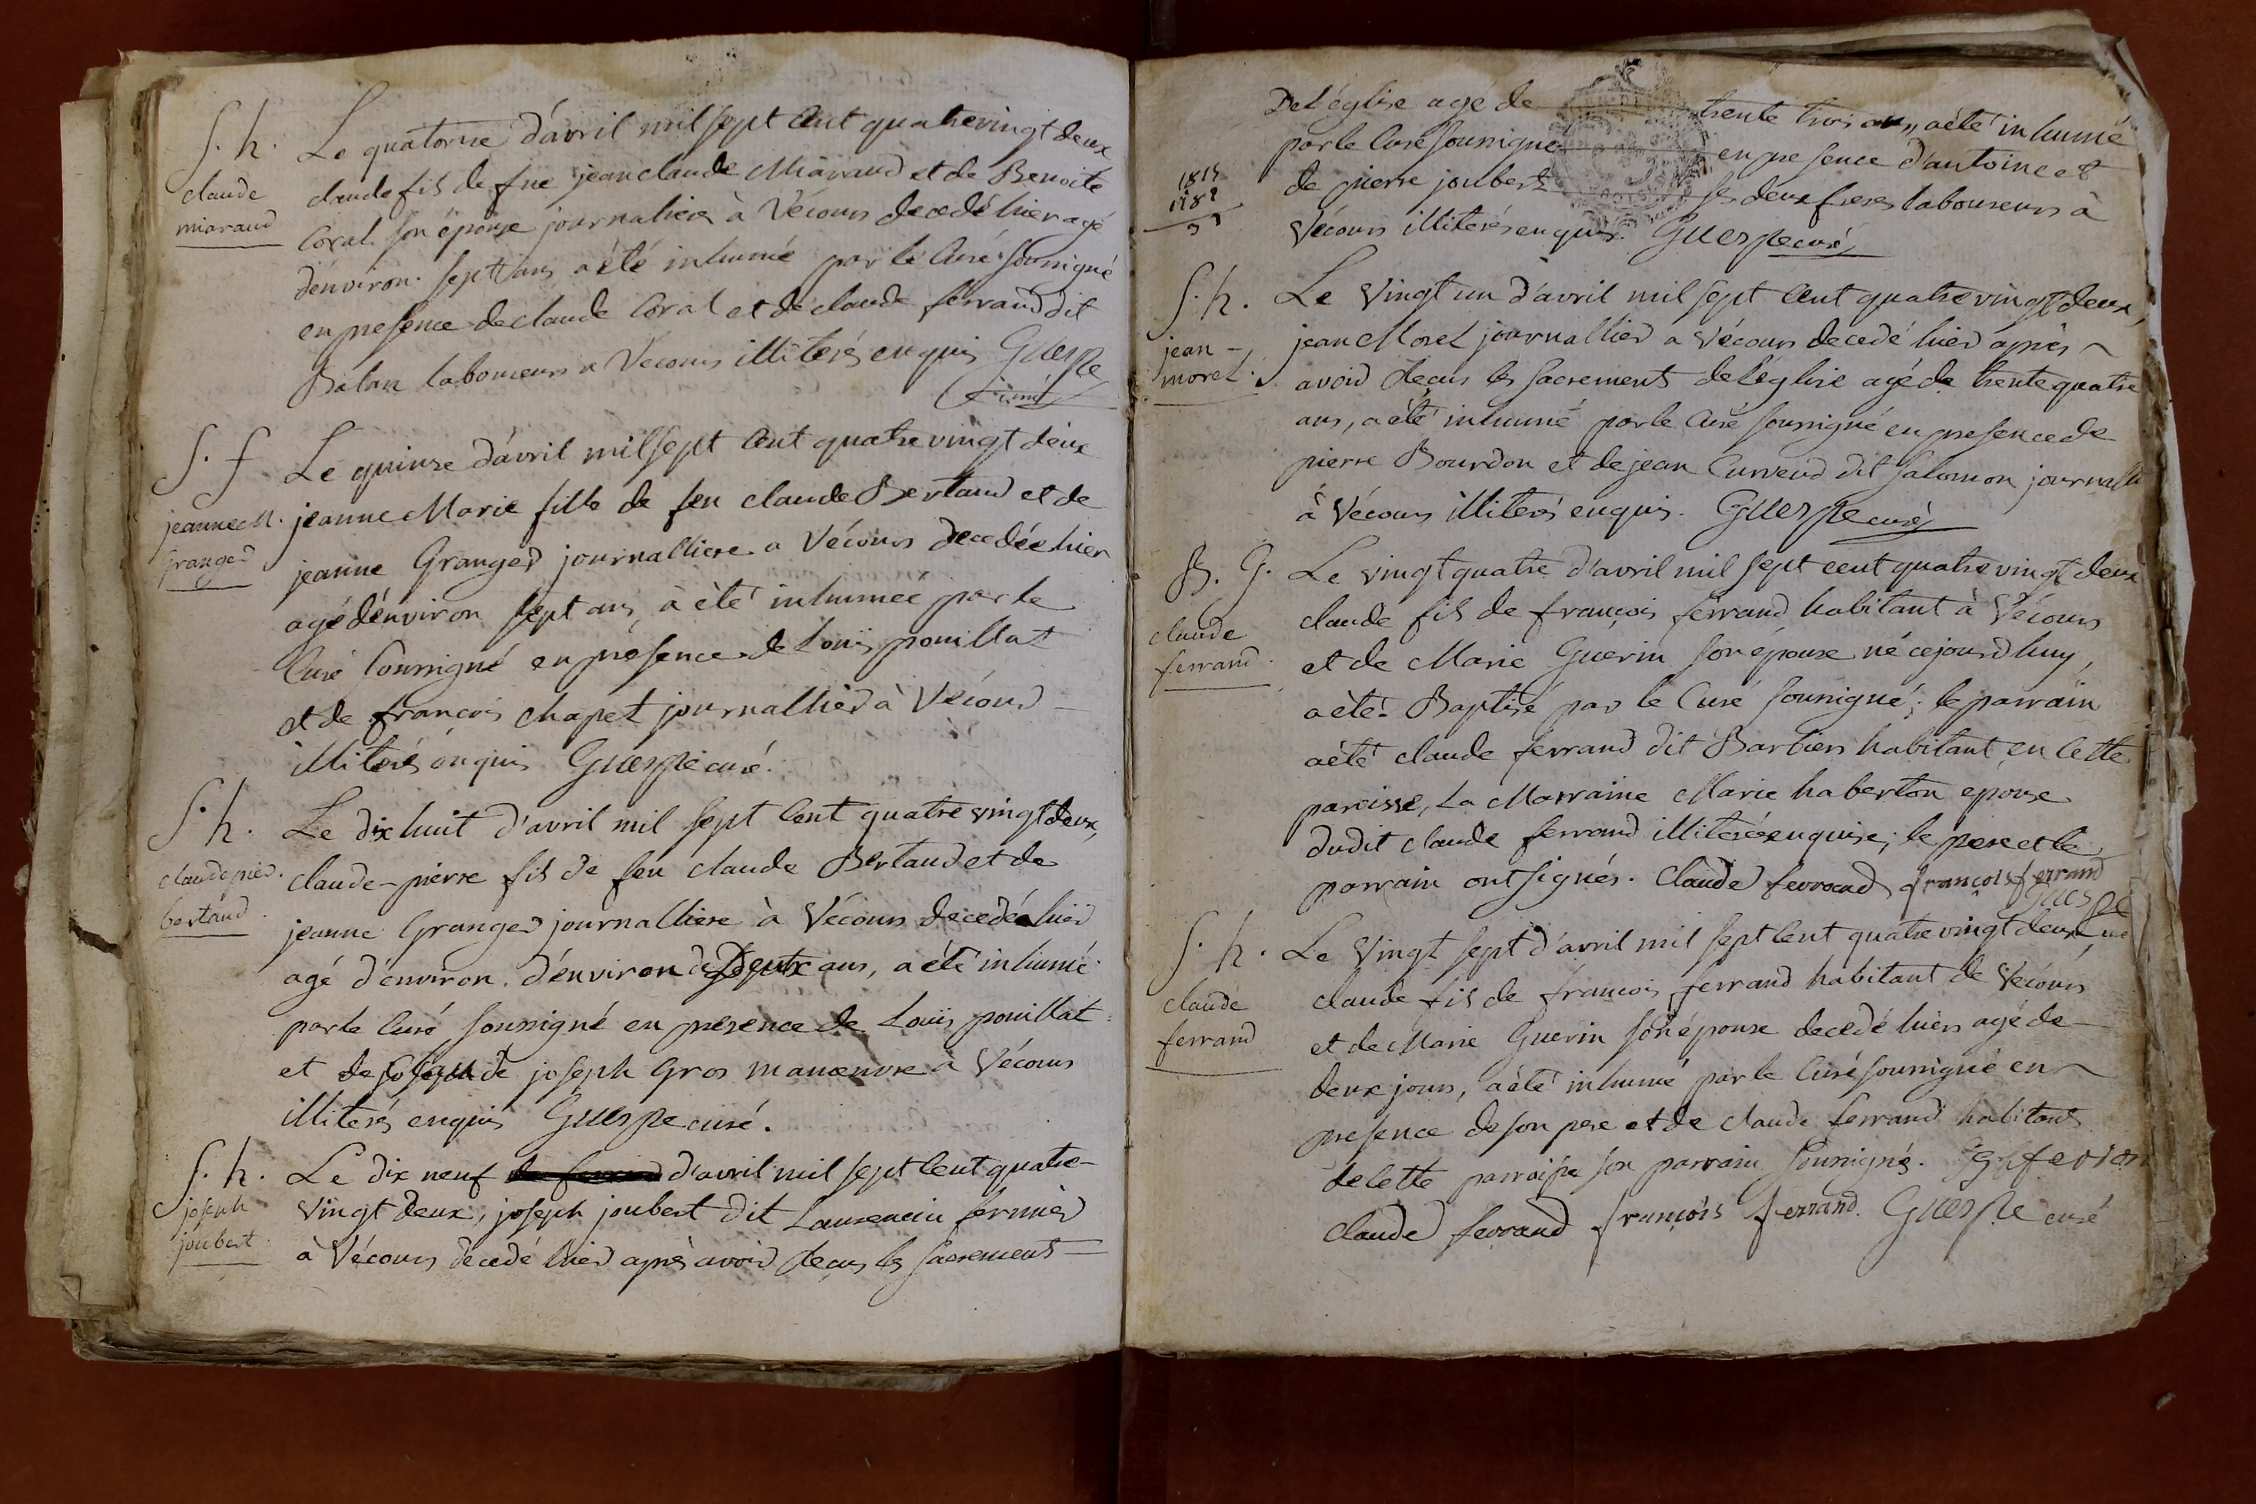 S. h.
claude
miaraud
Le quatorze d'avril mil sept cent quatrevingt deux
claude fils de feu jean claude Miaraud et de Benoite
Coral son épouse journaliere à Vécours decedé hier agé
d'énviron sept ans a été inhumé par le Curé soussigné
en presence de claude Coral et de claude ferrand dit
Balan laboureurs a Vecours illiterés enquis Guerpe
Curé
S. f
jeanne M.
Granger
Le quinze d'avril mil sept cent quatre vingt deux
jeanne Marie fille de feu claude Bertaud et de
jeanne Granger journalliere a Vécours decedée hier
agé d'énviron sept ans, a été inhumée par le
Curé soussigné en présence de Louis pouillat
et de francois chapet journallier à Vécours
illiterés énquis Guerpe curé.
S. h.
claude pier.
bertaud
Le dix huit d'avril mil sept cent quatre vingt deux,
claude-pierre fils de feu claude Bertaud et de
jeanne Granger journalliere à Vécours decedé hier
agé d'énviron d'énviron deux ans, a été inhumé
par le Curé soussigné en presence de Louis pouillat
et de joseph Gros manoeuvre à Vécours
illiterés enquis Guerpe curé.
S. h.
joseph
joubert
Le dix neuf d'avril mil sept cent quatre-
vingt deux, joseph joubert dit Laurencin fermier
à Vécours decedé hier après avoir recus les sacrements
De l'église agé de trente trois ans, a été inhumé
par le Curé soussigné en presence d'antoine et
de pierre joubert ses deux freres laboureurs à
Vécours illiterés enquis. Guerpe curé
1815
1782
S. h.
jean
morel
Le Vingt un d'avril mil sept cent quatre vingt deux,
jean Morel journallier a Vécours decedé hier après
avoir recus les sacrements de l'église agé de trente quatre
ans, a été inhumé par le Curé soussigné en presence de
pierre Bourdon et de jean Curveur dit salomon journall
à Vécours illiterés enquis. Guerpe curé
B. G.
claude
ferrand
Le vingt quatre d'avril mil sept cent quatre vingt deux
claude fils de françois ferrand habitant à Vécours
et de Marie Guerin son épouse né cejourd'huy,
a été Baptisé par le Curé soussigné; le parrain
a été claude ferrand dit Barbier habitant en Cette
paroisse, La Marraine Marie haberton epouse
dudit claude ferrand illiterée enquise; le pere et le
parrain ont signés. claude ferrand françois ferrand
Guerpe
S. h.
claude
ferrand
Le Vingt sept d'avril mil sept cent quatre vingt deux
claude fils de françois ferrand habitant de Vécours
et de Marie Guerin son épouse decedé hier agé de
deux jours, a été inhumé par le Curé soussigné en
presence de son pere et de claude ferrand habitants
de Cette parroisse son parrain soussignés.
claude ferrand françois ferrand. Guerpe curé